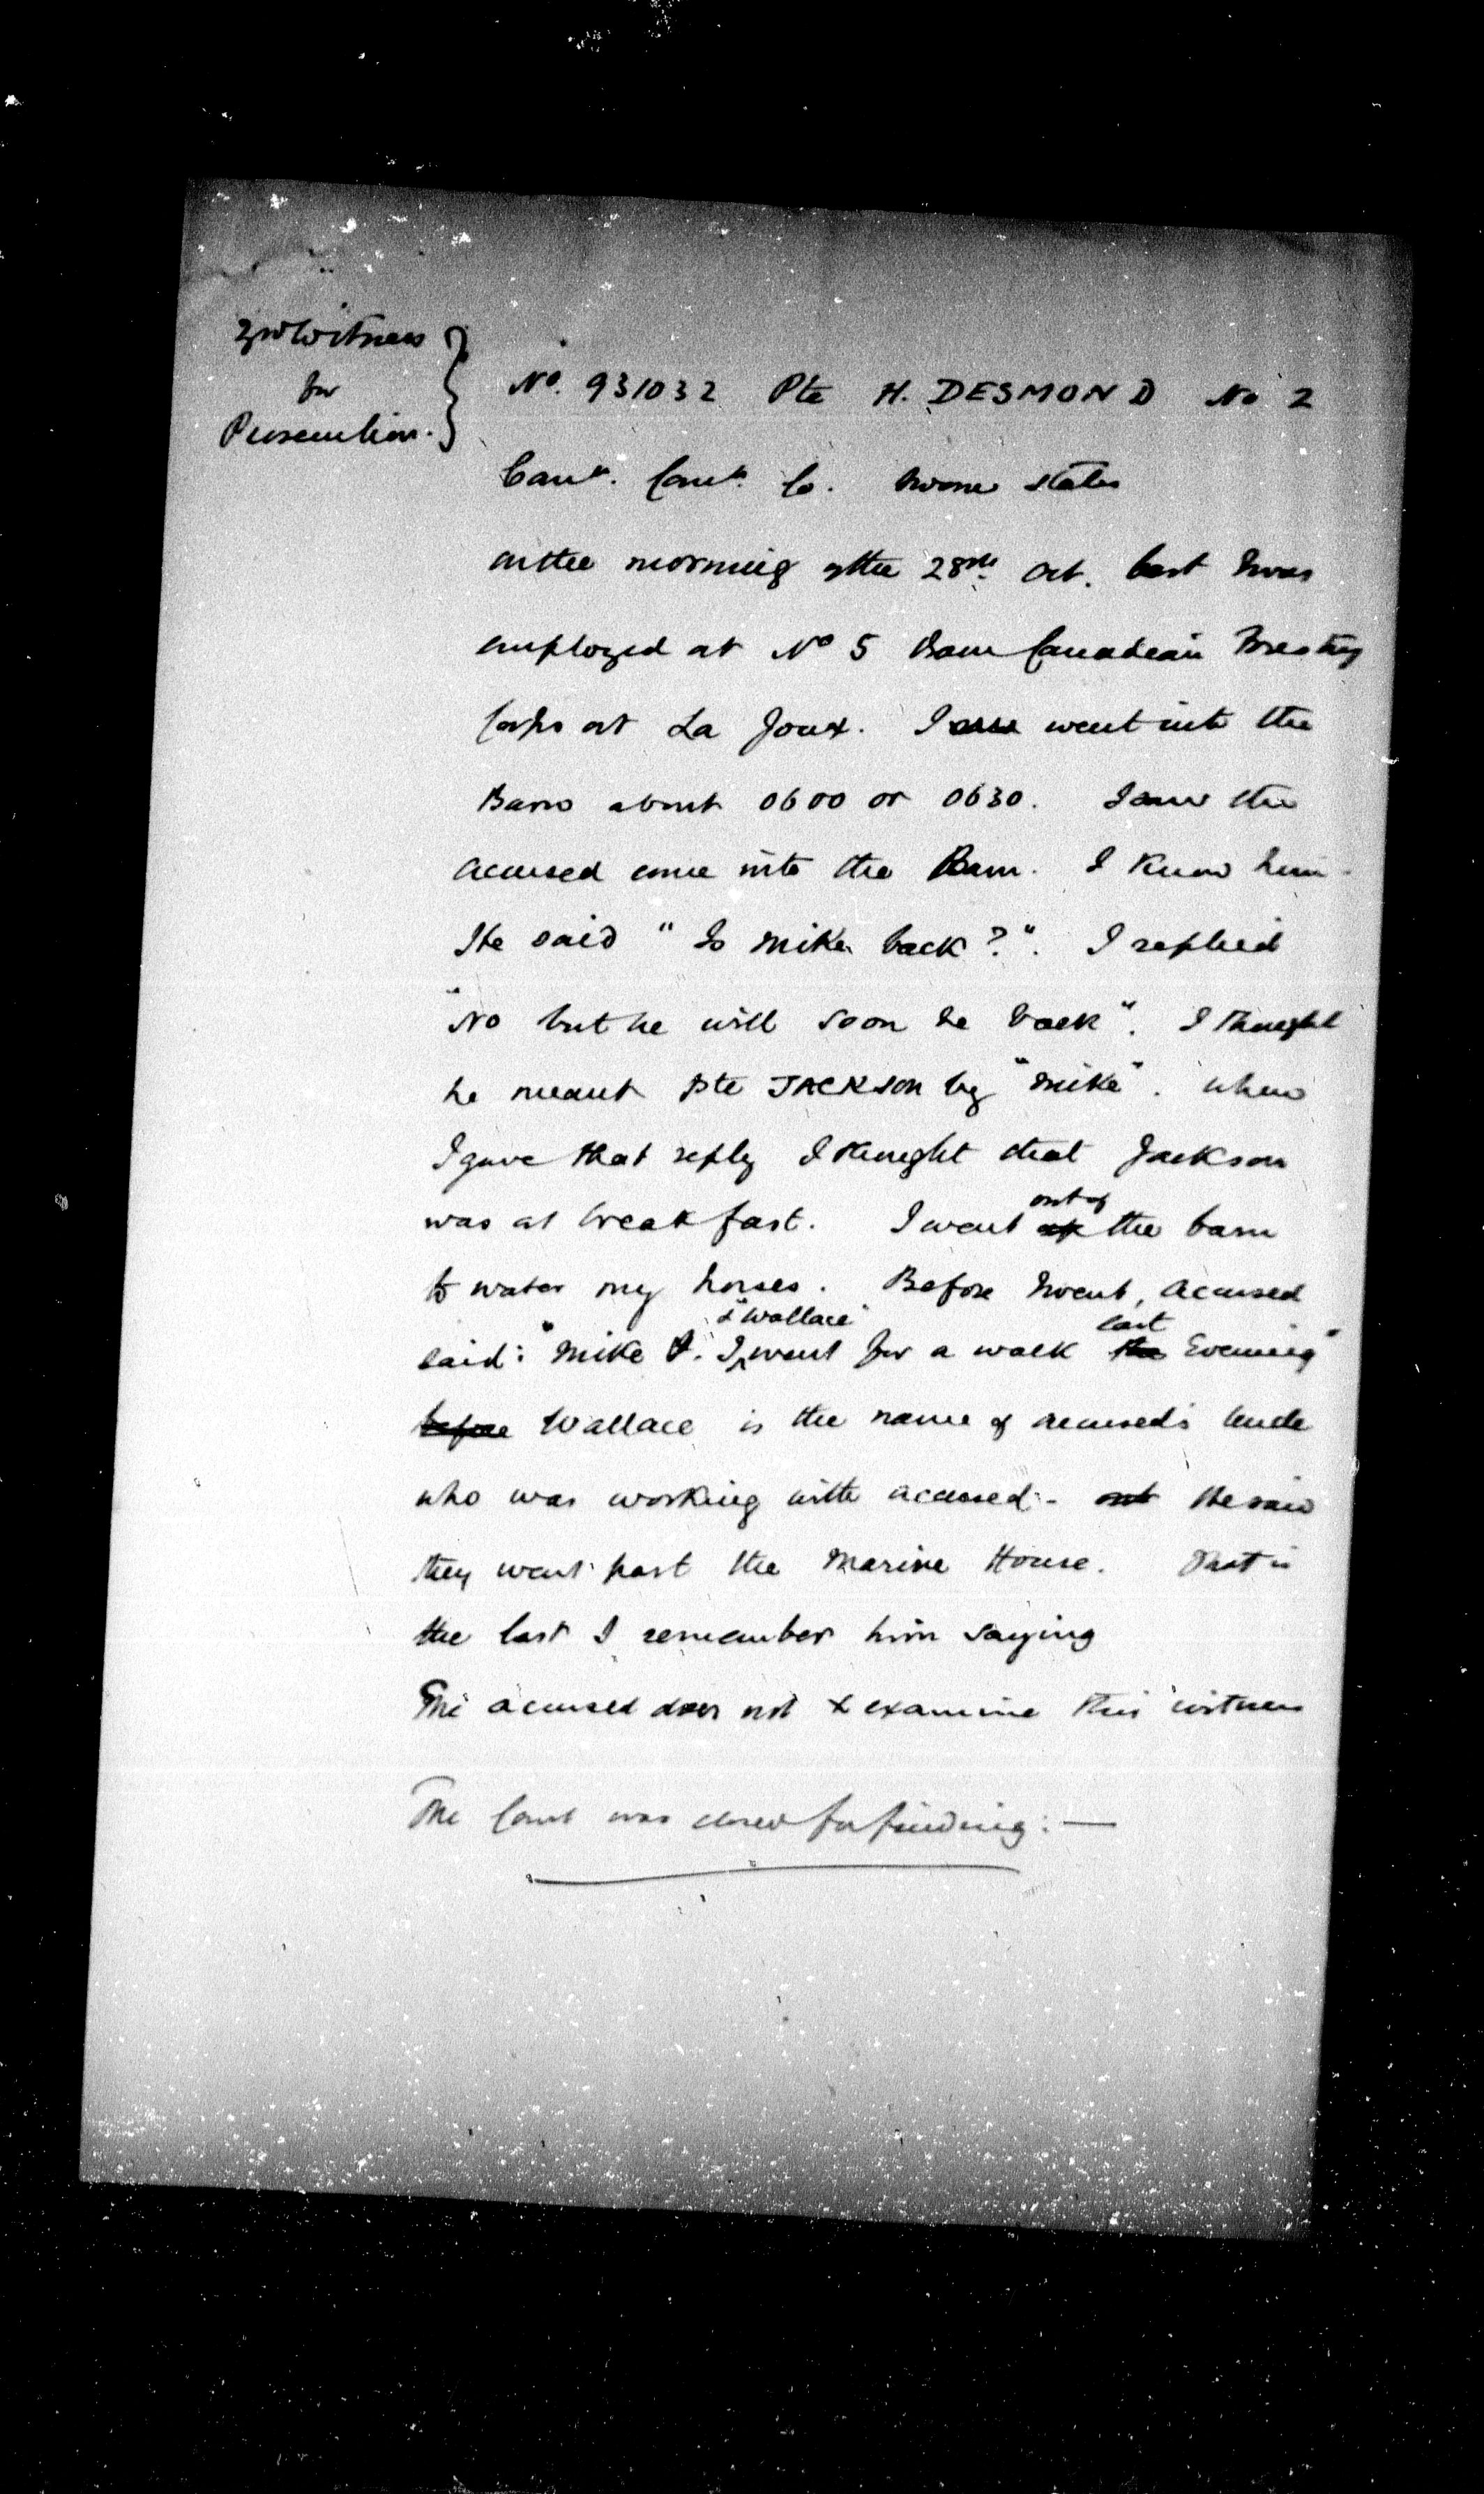 3rd Witness
for
Prosecution.
No. 931032 Pte H. DESMOND No 2
Cann. Cons. Co. sworn states
on the morning of the 28th Oct. last I was
employed at No 5 Barn Canadian Forestry
Corps at La Joux. I saw went into the
Barn about 0600 or 0630. I saw the
accused come into the Barn. I know him.
He said "Is Mike back?". I replied
"No but he will soon be back". I thought
he meant Pte JACKSON by "Mike". When
I gave that reply I thought that Jackson
was at breakfast. I went out of the barn
to water my horses. Before I went, accused
said: "Mike & I & "Wallace" went for a walk the last Evening"
before Wallace is the name of accused's Uncle
who was working with accused. He said
they went past the Marine House. That is
the last I remember him saying
The accused does not X examine this witness
The Court was closed for finding:—